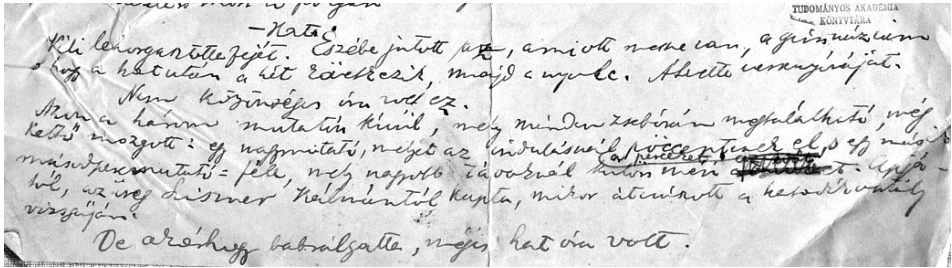 TUDOMÁNYOS AKADEMIA
KÖNYVTÁRA
— Hat
Kili lehorgasztotta fejét. Eszébe jutott az, amiott messe van, a gimnázium
s hogy a hat után a hét következik, majd a nyolc. Átvette versenyóráját.
Nem közönséges óra volt ez.
Azon a három mutatón kívül, mely minden zsebórán megtalálható, még
kettő mozgott: egy nagymutató, melyet az indulásnál pöccentenek el, s egy másik
másodpercmutató-féle, mely nagyobb távoknál külön méri a perceket. Apjá-
tól, az öreg Liszner Kálmántól kapta, mikor átcsúszott a hatodik osztály
vizsgáján.
De akárhogy babrálgatta, mégis hat óra volt.